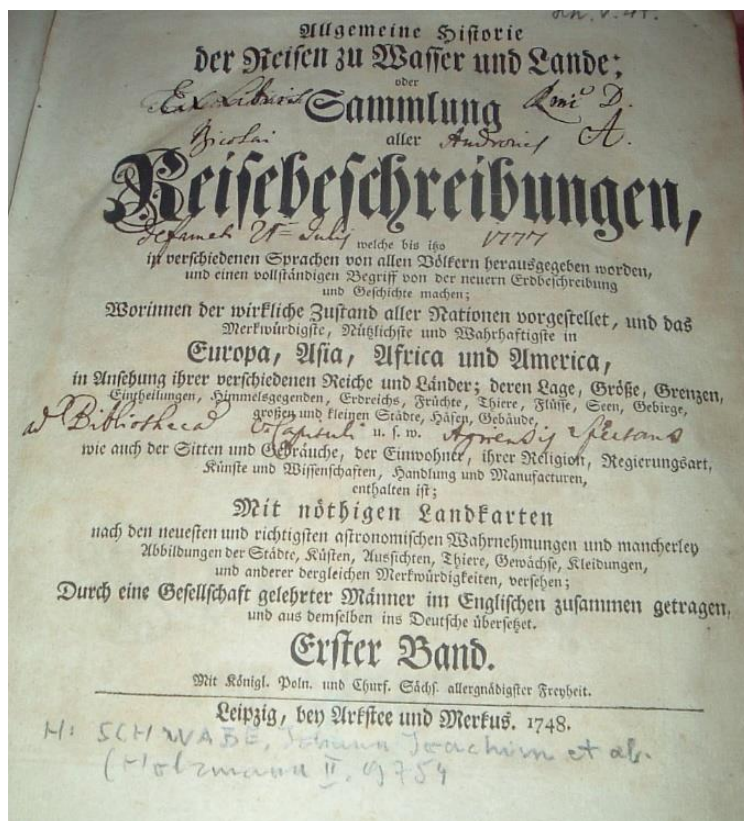 Allgemeine Historie
der Reisen zu Wasser und Lande;
oder
Ex Libris Sammlung Rmi D.
Nicolai aller A.
Reisebeschreibungen,
21 Julij welche bis itzo 1777
in verschiedenen Sprachen von allen Völkern herausgegeben worden,
und einen vollständigen Begriff von der neuern Erdbeschreibung
und Geschichte machen;
Worinnen der wirkliche Zustand aller Nationen vorgestellet, und das
Merkwürdigste, Nützlichste und Wahrhaftigste in
Europa, Asia, Africa und America,
in Ansehung ihrer verschiedenen Reiche und Länder; deren Lage, Größe, Grenzen,
Eintheilungen, Himmelsgegenden, Erdreichs, Früchte, Thiere, Flüsse, Seen, Gebirge,
großen und kleinen Städte, Häfen, Gebäude,
ad Bibliotheca Capituli u. s. w. spectans
wie auch der Sitten und Gebräuche, der Einwohner, ihrer Religion, Regierungsart,
Künste und Wissenschaften, Handlung und Manufacturen,
enthalten ist;
Mit nöthigen Landkarten
nach den neuesten und richtigsten astronomischen Wahrnehmungen und mancherley
Abbildungen der Städte, Küsten, Aussichten, Thiere, Gewächse, Kleidungen,
und anderer dergleichen Merkwürdigkeiten, versehen;
Durch eine Gesellschaft gelehrter Männer im Englischen zusammen getragen,
und aus demselben ins Deutsche übersetzet.
Erster Band.
Mit Königl. Poln. und Churf. Sächs. allergnädigster Freyheit.
Leipzig, bey Arkstee und Merkus. 1748.
H: SCHWABE, Johann Joachim et al.
(Holzmann II, 9754